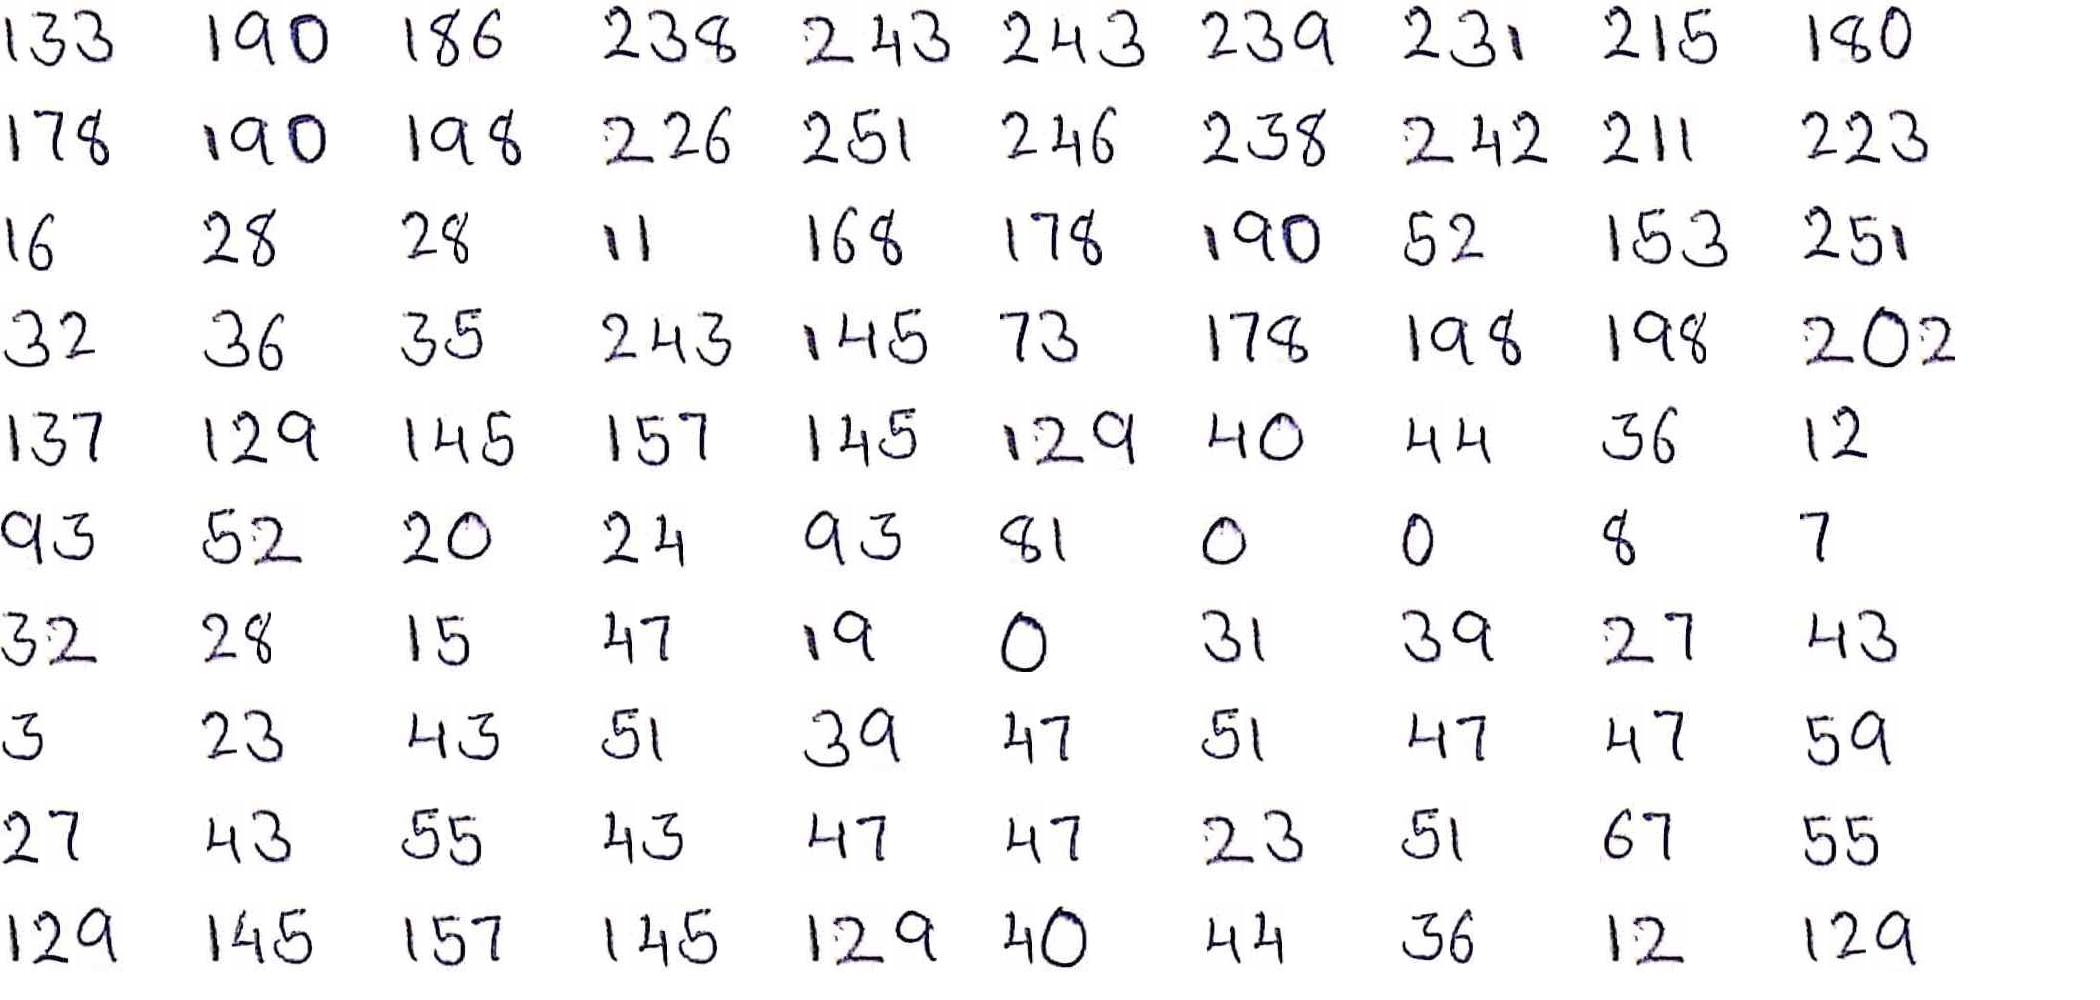 133 190 186 238 243 243 239 231 215 180
178 190 198 226 251 246 238 242 211 223
16 28 28 11 168 178 190 52 153 251
32 36 35 243 145 73 178 198 198 202
137 129 145 157 145 129 40 44 36 12
93 52 20 24 93 81 0 0 8 7
32 28 15 47 19 0 31 39 27 43
3 23 43 51 39 47 51 47 47 59
27 43 55 43 47 47 23 51 67 55
129 145 157 145 129 40 44 36 12 129